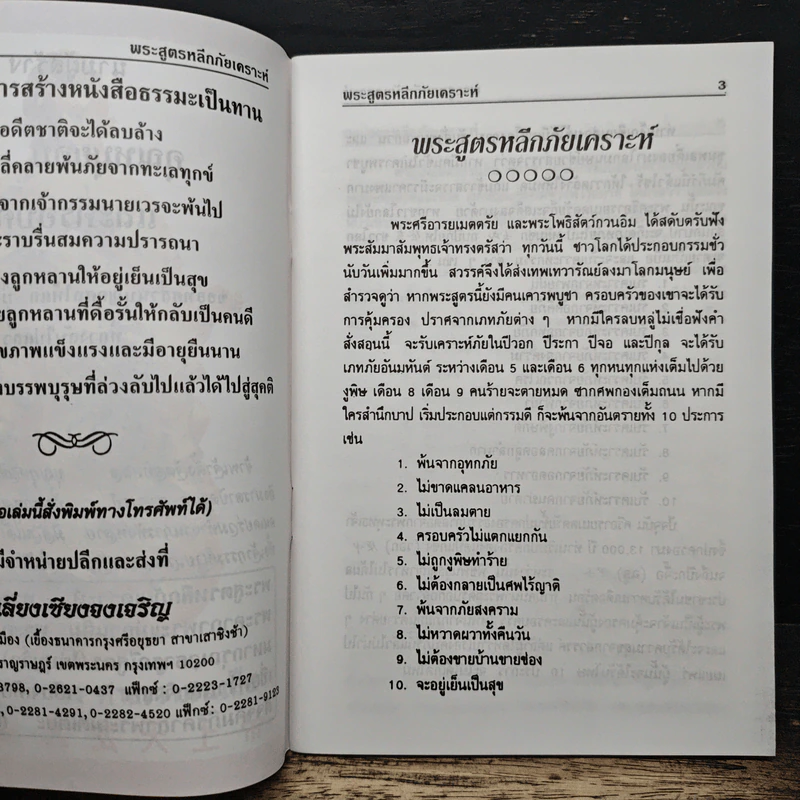 พระสูตรหลีกภัยเคราะห์
ารสร้างหนังสือธรรมะเป็นทาน
อดีตชาติจะได้ลบล้าง
ลี่คลายพ้นภัยจากทะเลทุกข์
จากเจ้ากรรมนายเวรจะพ้นไป
ะราบรื่นสมความปรารถนา
งลูกหลานให้อยู่เย็นเป็นสุข
ยลูกหลานที่ดื้อรั้นให้กลับเป็นคนดี
ขภาพแข็งแรงและมีอายุยืนนาน
บรรพบุรุษที่ล่วงลับไปแล้วได้ไปสู่สุคติ
อเล่มนี้สั่งพิมพ์ทางโทรศัพท์ได้)
มีจำหน่ายปลีกและส่งที่
ลี่ยงเซียงจงเจริญ
เมือง (เยื้องธนาคารกรุงศรีอยุธยา สาขาเสาชิงช้า)
ราญราษฎร์ เขตพระนคร กรุงเทพฯ 10200
3798, 0-2621-0437 แฟ็กซ์ : 0-2223-1727
, 0-2281-4291, 0-2282-4520 แฟ็กซ์ : 0-2281-9123
พระสูตรหลีกภัยเคราะห์ 3
พระสูตรหลีกภัยเคราะห์
พระศรีอารยเมตตรัย และพระโพธิสัตว์กวนอิม ได้สดับตรับฟัง
พระสัมมาสัมพุทธเจ้าทรงตรัสว่า ทุกวันนี้ ชาวโลกได้ประกอบกรรมชั่ว
นับวันเพิ่มมากขึ้น สวรรค์จึงได้ส่งเทพเทวารัณย์ลงมาโลกมนุษย์ เพื่อ
สำรวจดูว่า หากพระสูตรนี้ยังมีคนเคารพบูชา ครอบครัวของเขาจะได้รับ
การคุ้มครอง ปราศจากเภทภัยต่าง ๆ หากมีใครลบหลู่ไม่เชื่อฟังคำ
สั่งสอนนี้ จะรับเคราะห์ภัยในปีวอก ปีระกา ปีจอ และปีกุล จะได้รับ
เภทภัยอันมหันต์ ระหว่างเดือน 5 และเดือน 6 ทุกหนทุกแห่งเต็มไปด้วย
งูพิษ เดือน 8 เดือน 9 คนร้ายจะตายหมด ซากศพกองเต็มถนน หากมี
ใครสำนึกบาป เริ่มประกอบแต่กรรมดี ก็จะพ้นจากอันตรายทั้ง 10 ประการ
เช่น
1. พ้นจากอุทกภัย
2. ไม่ขาดแคลนอาหาร
3. ไม่เป็นลมตาย
4. ครอบครัวไม่แตกแยกกัน
5. ไม่ถูกงูพิษทำร้าย
6. ไม่ต้องกลายเป็นศพไร้ญาติ
7. พ้นจากภัยสงคราม
8. ไม่หวาดผวาทั้งคืนวัน
9. ไม่ต้องขายบ้านขายช่อง
10. จะอยู่เย็นเป็นสุข